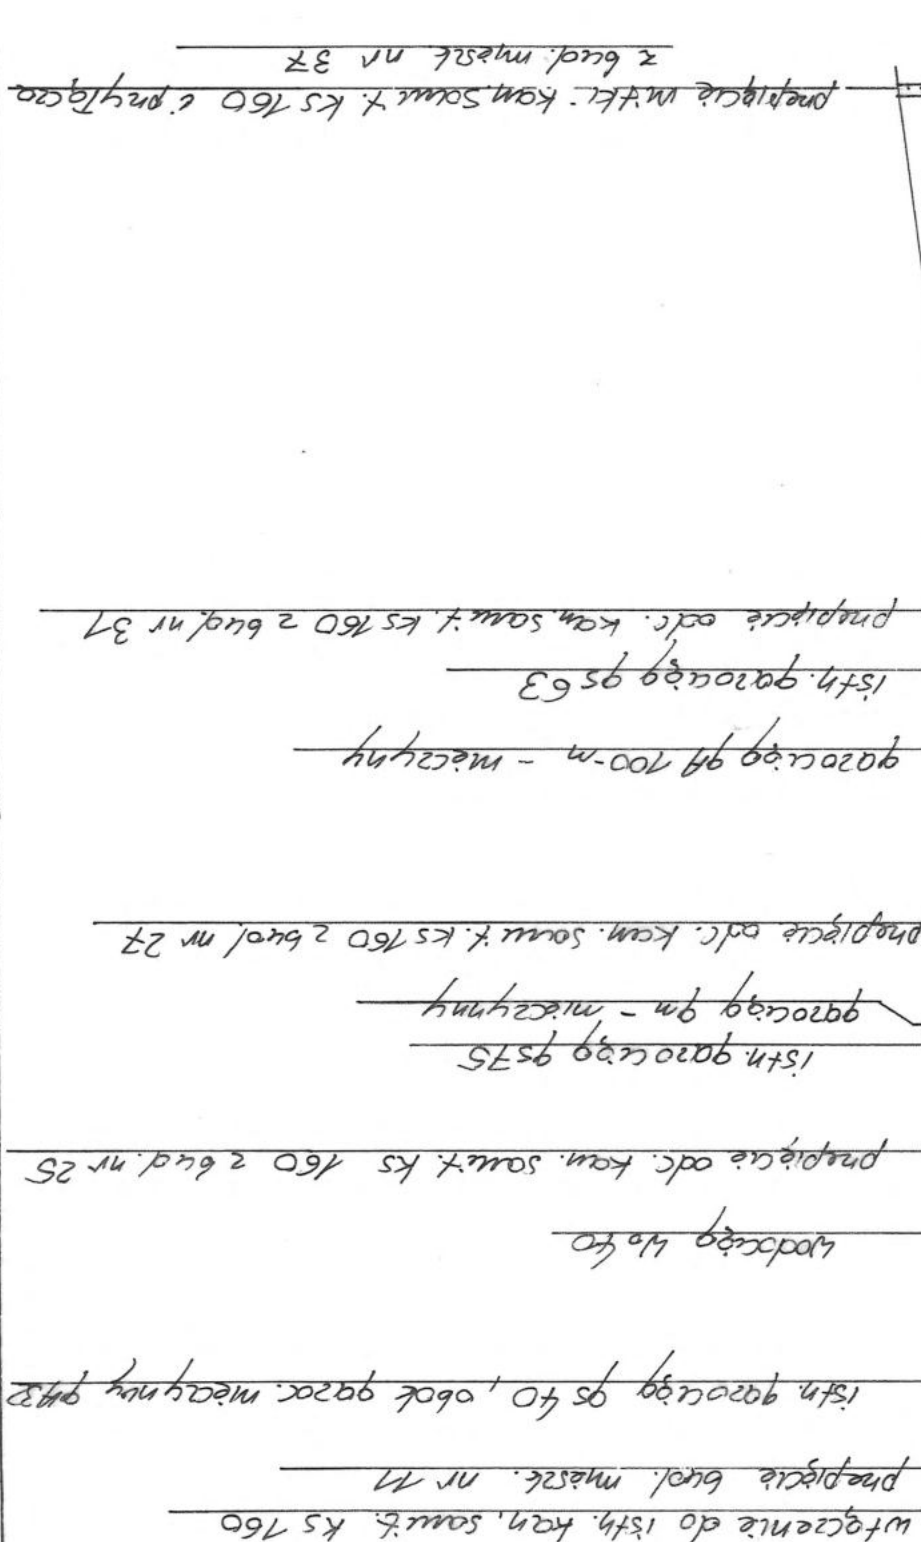 włączenie do istn. kan. sanit. ks 160
przepięcie bud. mieszk. nr 11
istn. gazociąg gs 40, obok gazoc. nieczynny
wodociąg wo 40
przepięcie odc. kan. sanit. ks 160 z bud. nr 25
istn. gazociąg gs 75
gazociąg gm - nieczynny
przepięcie odc. kan. sanit. ks 160 z bud. nr 27
gazociąg gA 100-m - nieczynny
istn. gazociąg gs 63
przepięcie odc. kan. sanit. ks 160 z bud. nr 31
przepięcie nitki kan. sanit. ks 160 i przyłącza
z bud. mieszk. nr 37